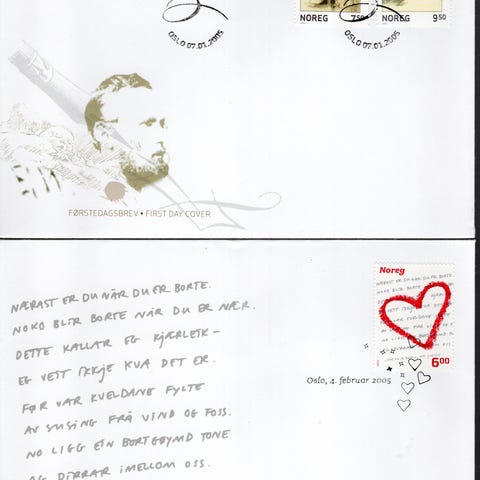 NOREG 750
NOREG 9 50
OSLO 07.01.2005
OSLO 07.01.2005
FØRSTEDAGSBREV • FIRST DAY COVER
Noreg
6 00
Oslo, 4. februar 2005
NÆRAST ER DU NÅR DU ER BORTE.
NOKO BLIR BORTE NÅR DU ER NÆR.
DETTE KALLAR EG KJÆRLEIK –
EG VEIT IKKJE KVA DET ER.
FØR VAR KVELDANE FYLTE
AV SUSING FRÅ VIND OG FOSS.
NO LIGG EIN BORTGØYMD TONE
OG DIRRAR IMELLOM OSS.